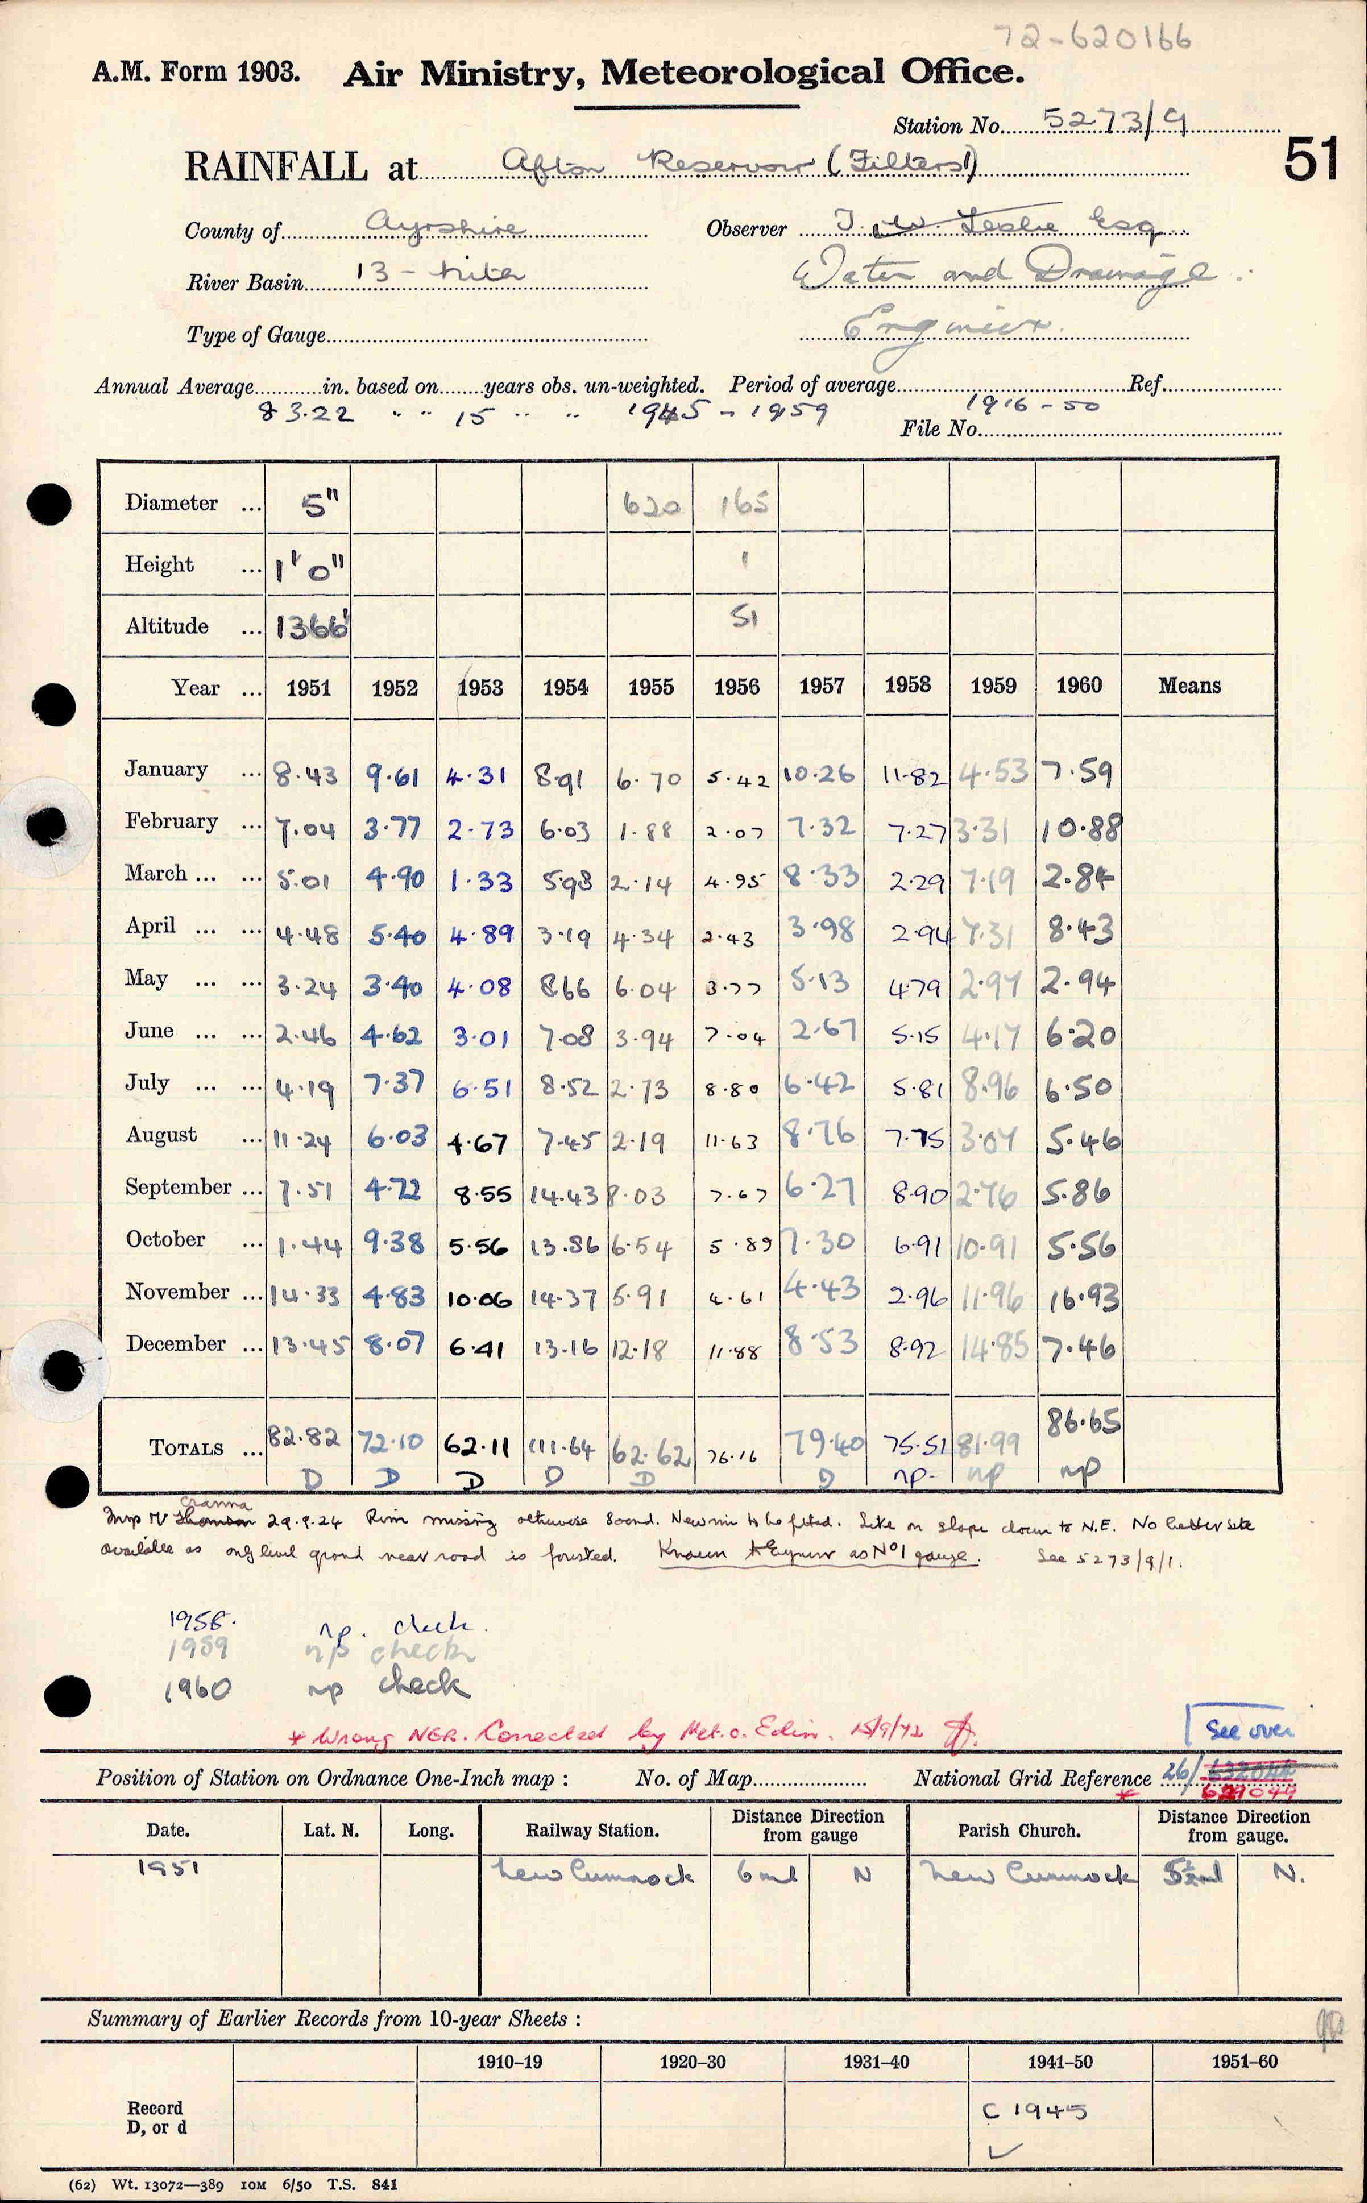 72-620166
A.M. Form 1903. Air Ministry, Meteorological Office.
Station No. 5273/9
51
RAINFALL at Afton Reservoir (Filters 1)
County of Ayrshire Observer J. W. Leslie Esq
River Basin 13 - Nith Water and Drainage
Type of Gauge Engineer.
Annual Average in. based on years obs. un-weighted. Period of average Ref.
83.22 " " 15 " " 1945 - 1959 1916-50
File No.
Diameter ... 5" 620 165
Height ... 1' 0" 1
Altitude ... 1366' 51
Year ... 1951 1952 1953 1954 1955 1956 1957 1958 1959 1960 Means
January ... 8.43 9.61 4.31 8.91 6.70 5.42 10.26 11.82 4.53 7.59
February ... 7.04 3.77 2.73 6.03 1.88 2.07 7.32 7.27 3.31 10.88
March ... ... 5.01 4.90 1.33 5.98 2.14 4.95 8.33 2.29 7.19 2.84
April ... ... 4.48 5.40 4.89 3.19 4.34 2.43 3.98 2.94 7.31 8.43
May ... ... 3.24 3.40 4.08 8.66 6.04 3.77 5.13 4.79 2.97 2.94
June ... ... 2.46 4.62 3.01 7.08 3.94 7.04 2.67 5.15 4.17 6.20
July ... ... 4.19 7.37 6.51 8.52 2.73 8.80 6.42 5.81 8.96 6.50
August ... 11.24 6.03 4.67 7.45 2.19 11.63 8.76 7.75 3.07 5.46
September ... 7.51 4.72 8.55 14.43 8.03 7.67 6.27 8.90 2.76 5.86
October ... 1.44 9.38 5.56 13.86 6.54 5.89 7.30 6.91 10.91 5.56
November ... 14.33 4.83 10.06 14.37 5.91 4.61 4.43 2.96 11.96 16.93
December ... 13.45 8.07 6.41 13.16 12.18 11.88 8.53 8.92 14.85 7.46
TOTALS ... 82.82 72.10 62.11 111.64 62.62 76.16 79.40 75.51 81.99 86.65
D D D D D D np. np np
Cranna
Insp Mr Thomson 29.9.24 Rim missing otherwise sound. New rim to be fitted. Site on slope down to N.E. No better site
available as only level ground near road is forested. Known as No 1 gauge. See 5273/9/1.
1958. np. check.
1959 np check
1960 np check
* Wrong NGR. Corrected by Met.O. Edin. 15/9/72
See over
Position of Station on Ordnance One-Inch map : No. of Map National Grid Reference 26/ 632044
* 629044
Date. Lat. N. Long. Railway Station. Distance Direction from gauge Parish Church. Distance Direction from gauge.
1951 New Cumnock 6 ml N New Cumnock 5½ml N.
Summary of Earlier Records from 10-year Sheets :
1910–19 1920–30 1931–40 1941–50 1951–60
Record
D, or d
C 1945
✓
(62) Wt. 13072—389 10M 6/50 T.S. 841